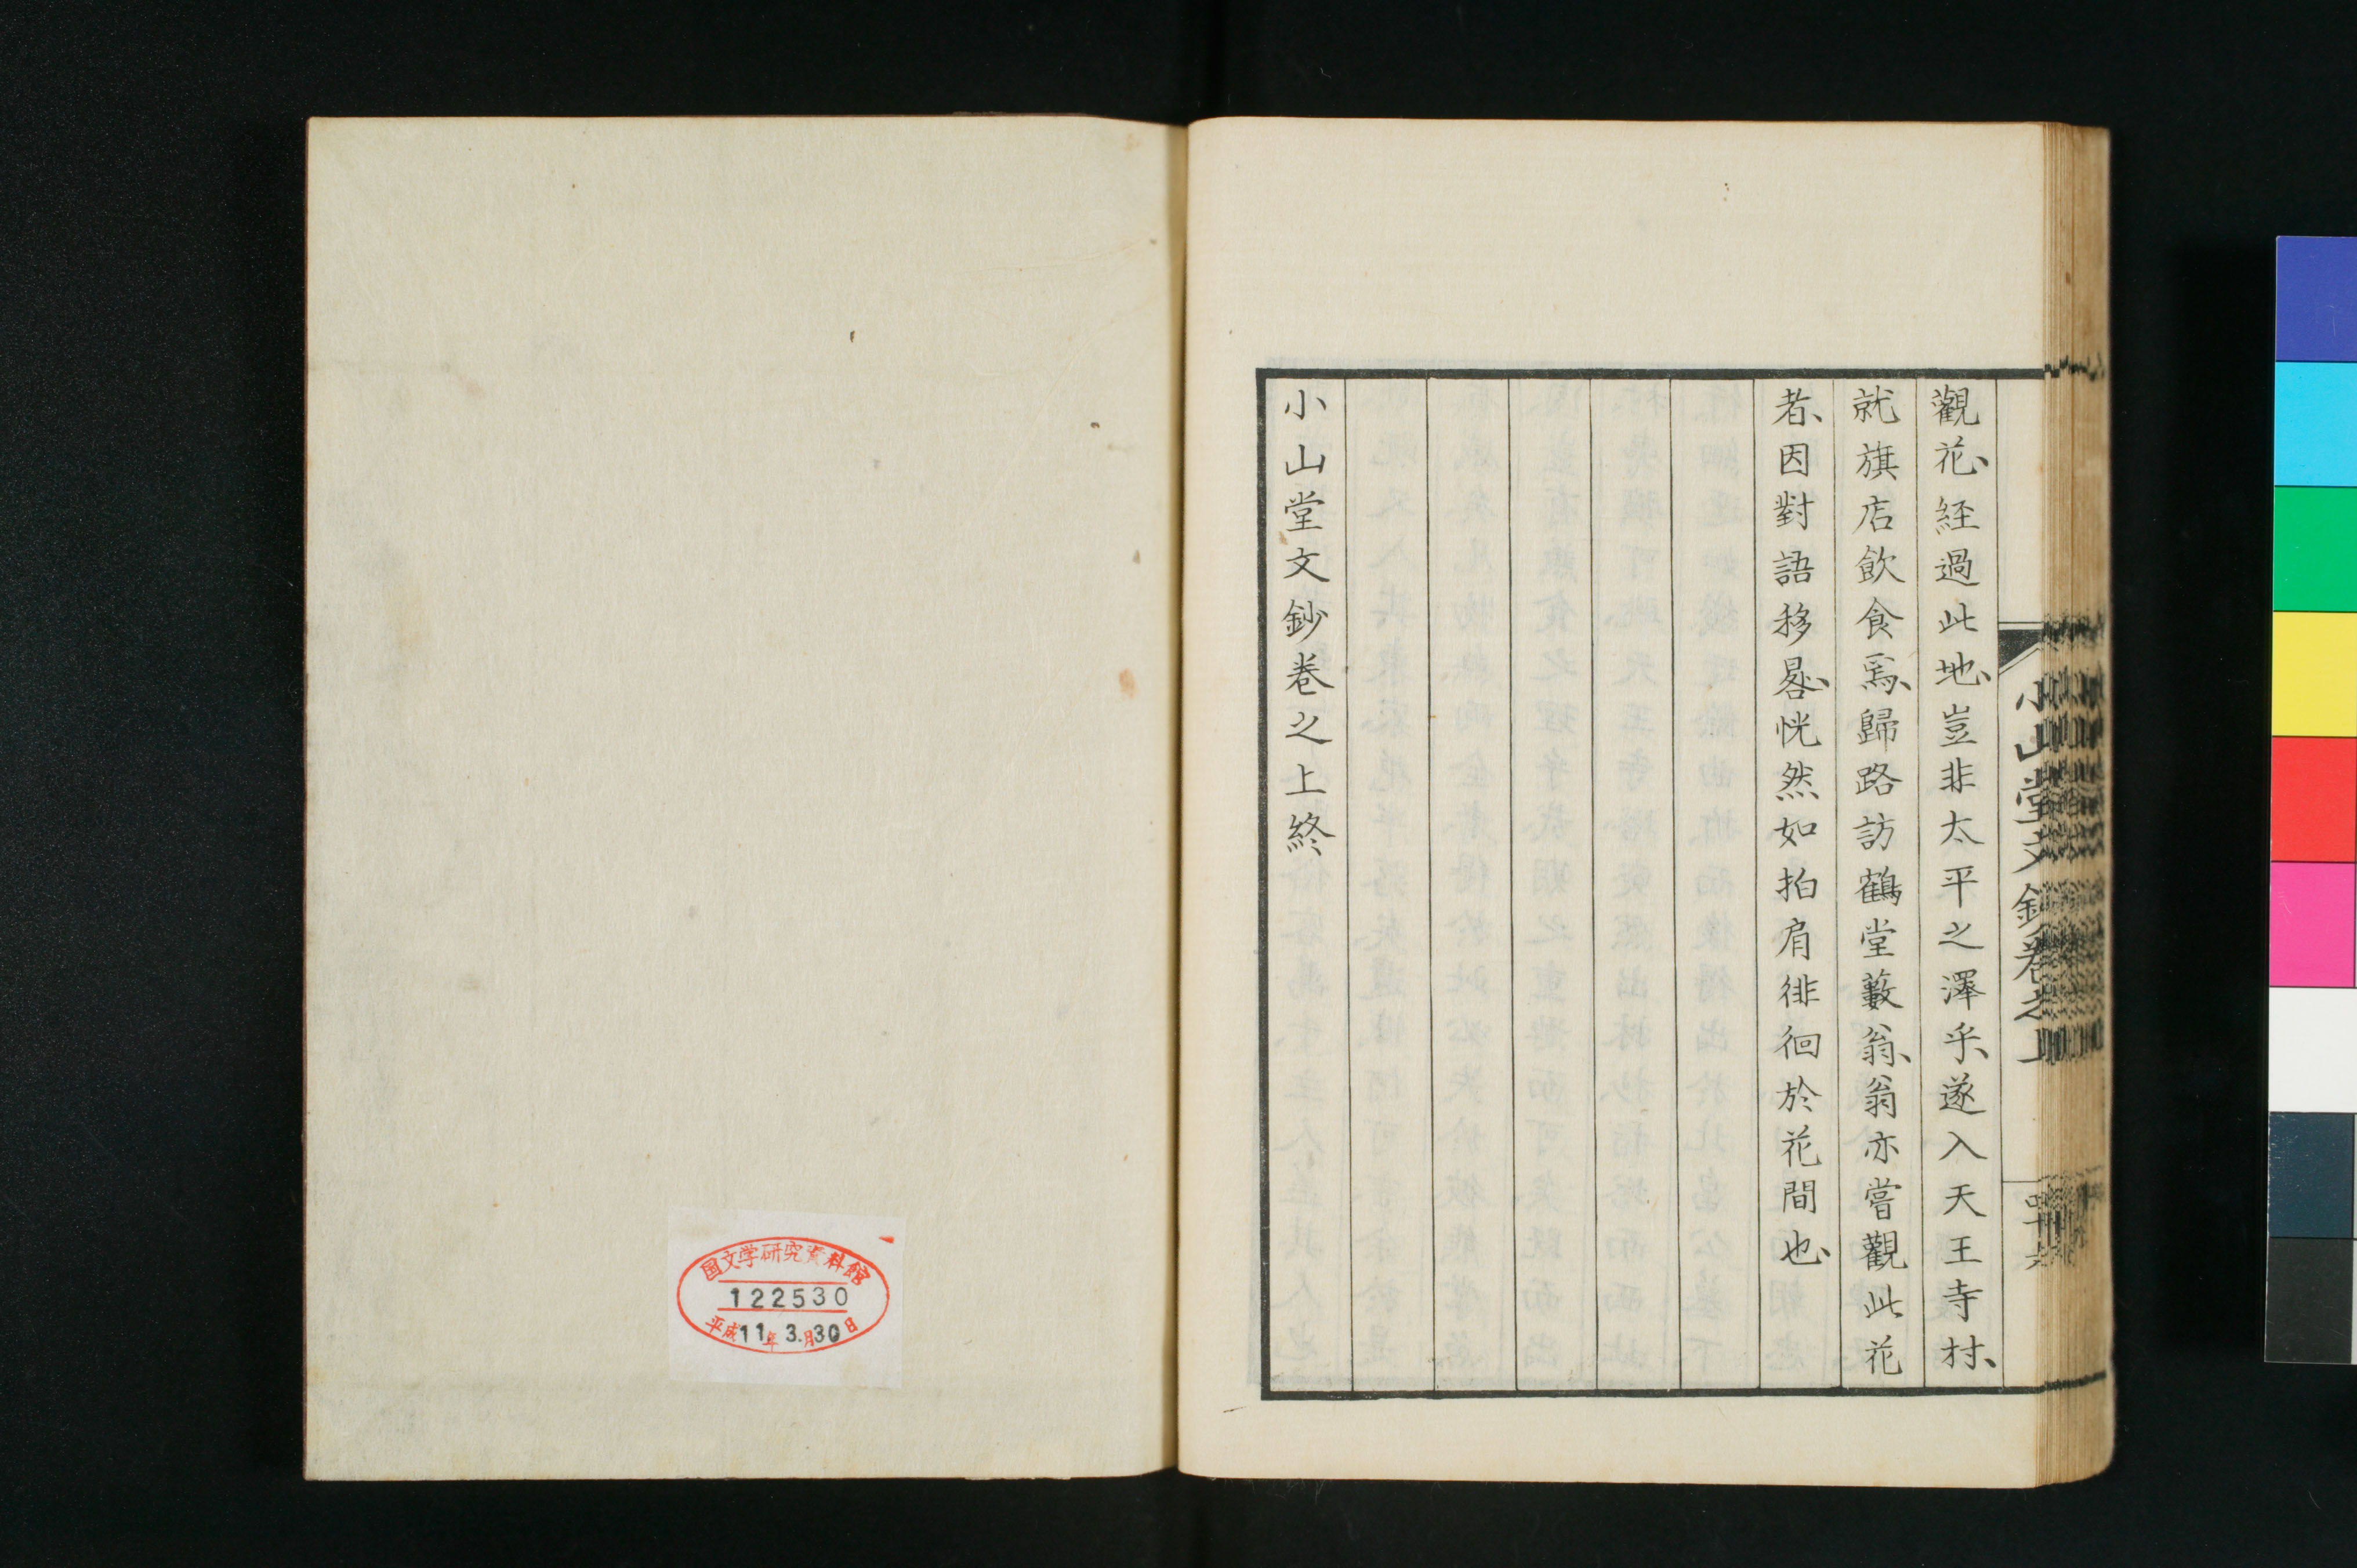 觀花、経過此地、豈非太平之澤乎、遂入天王寺村、
就旗店飲食焉、歸路訪鶴堂藪翁、翁亦嘗觀此花
者、因對語移晷、恍然如拍肩徘徊於花間也、
小山堂文鈔卷之上終
小山堂文鈔卷之上
国文学研究資料館
122530
平成11年3.月30日